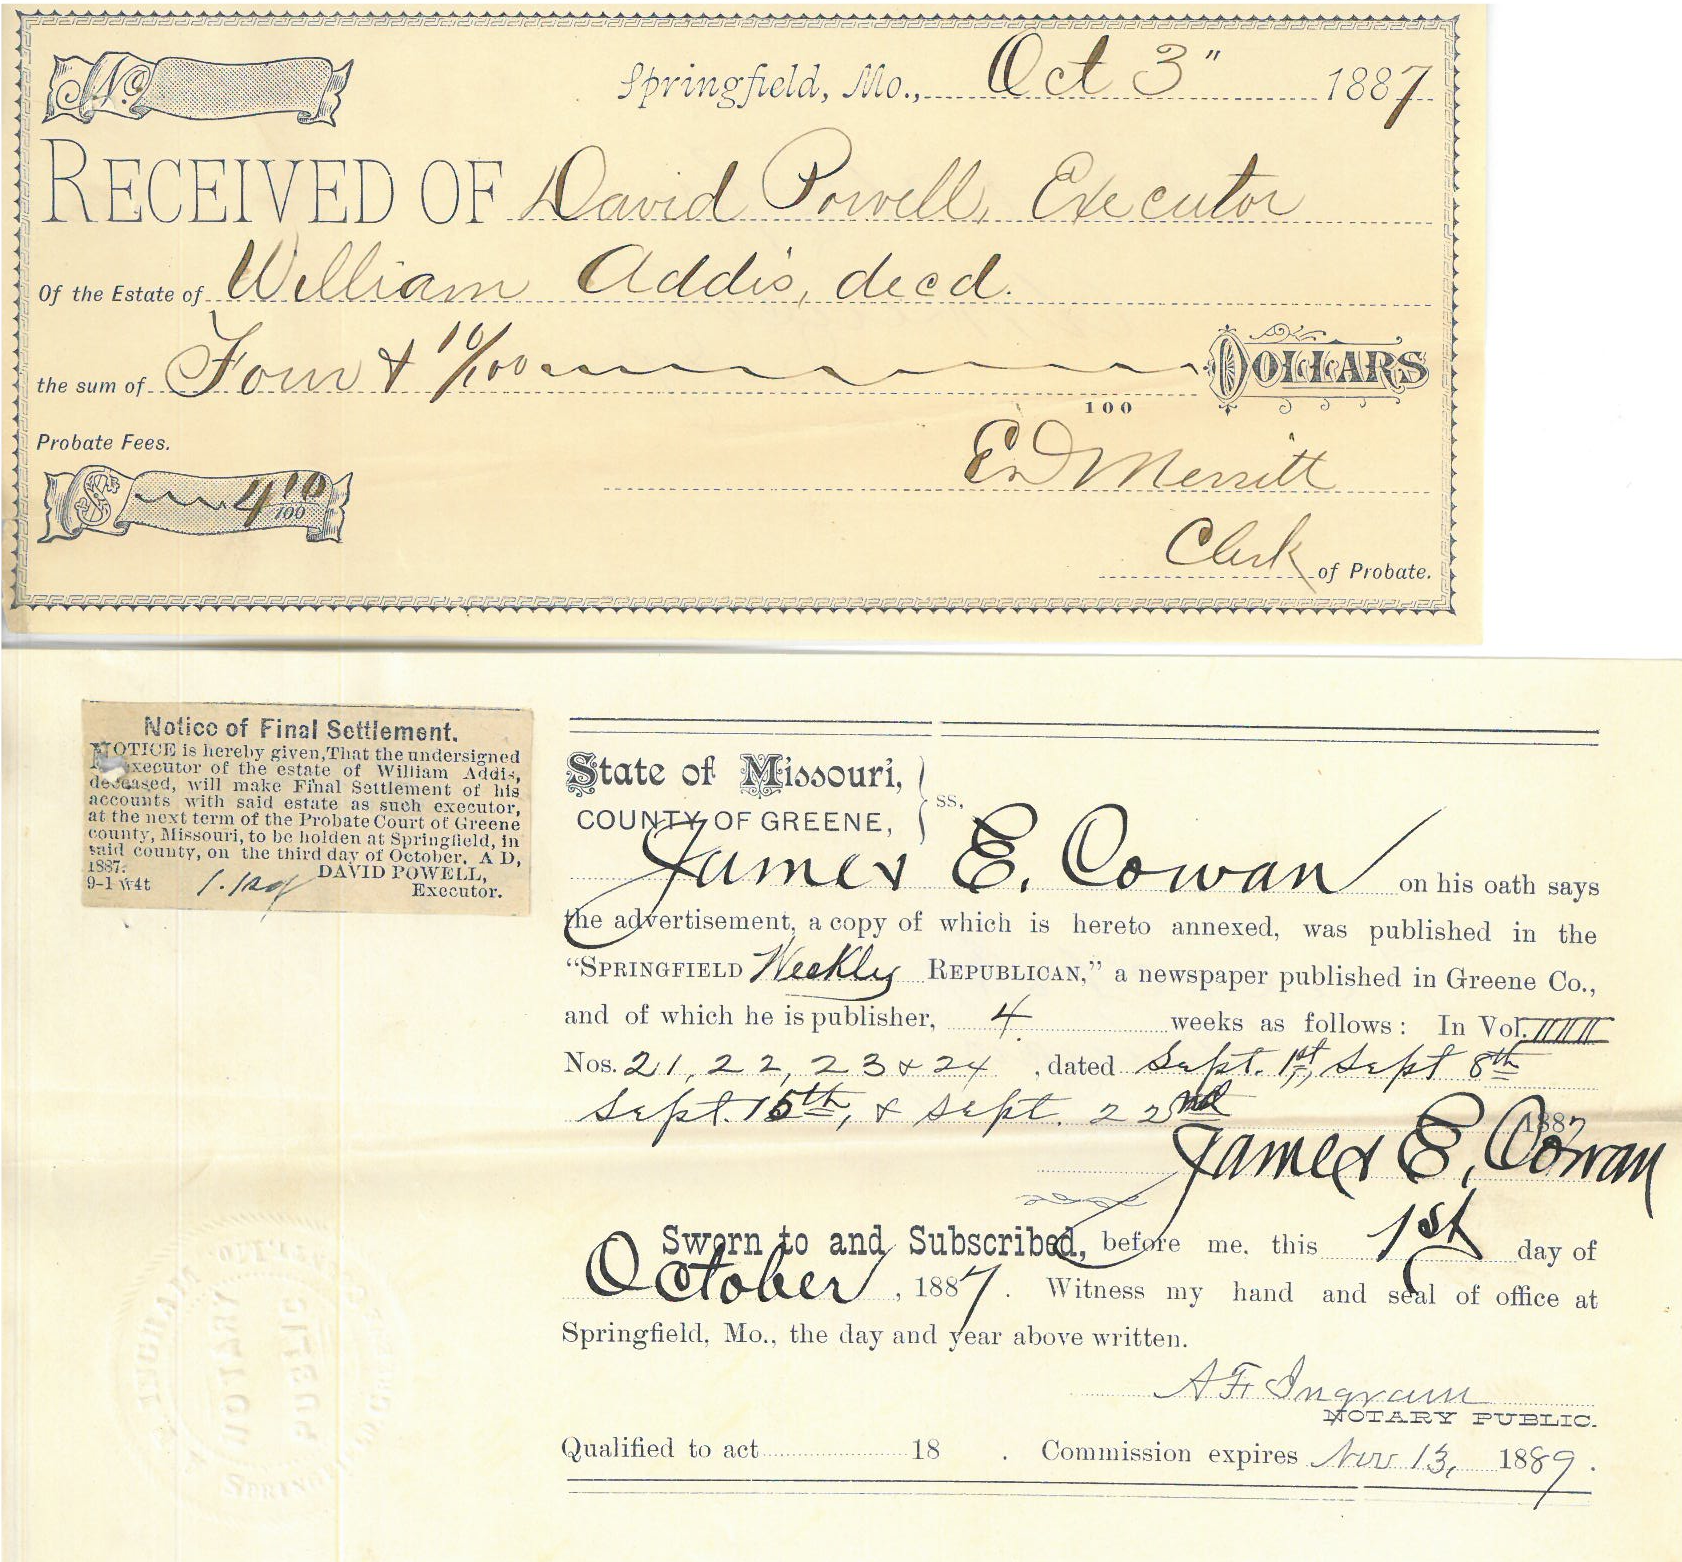 No.
Springfield, Mo., Oct 3" 1887
RECEIVED OF David Powell, Executor
Of the Estate of William Addis, decd.
the sum of Four & 10/100 DOLLARS
100
Probate Fees.
$ 4 10/100
Merritt
Clerk of Probate.
Notice of Final Settlement.
NOTICE is hereby given, That the undersigned
executor of the estate of William Addis,
deceased, will make Final Settlement of his
accounts with said estate as such executor,
at the next term of the Probate Court of Greene
county, Missouri, to be holden at Springfield, in
said county, on the third day of October, A D,
1887.
DAVID POWELL,
9-1 w4t
Executor.
State of Missouri,
COUNTY OF GREENE, } ss,
James E. Cowan on his oath says
the advertisement, a copy of which is hereto annexed, was published in the
"SPRINGFIELD Weekly REPUBLICAN," a newspaper published in Greene Co.,
and of which he is publisher, 4 weeks as follows: In Vol.
Nos. 21, 22, 23 & 24, dated Sept. 1st, Sept 8th
Sept. 15th, & Sept. 22nd 1887
James E. Cowan
Sworn to and Subscribed, before me, this 1st day of
October, 1887. Witness my hand and seal of office at
Springfield, Mo., the day and year above written.
A F Ingram
NOTARY PUBLIC.
Qualified to act 18 . Commission expires Nov 13, 1889.
NOTARY
PUBLIC